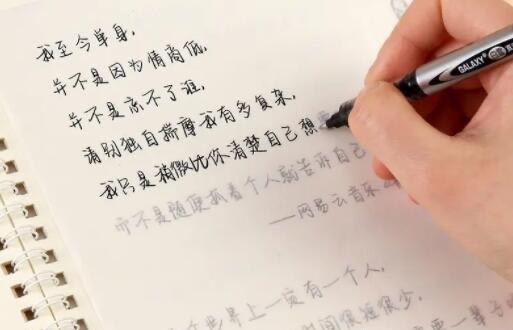 我至今单身,
并不是因为情商低,
并不是忘不了谁,
请别独自揣摩我有多复杂,
我只是稍微比你清楚自己想
而不是随便抓着个人就告诉自己
——网易云音乐
世界上一定有一个人,
时间很短很少,
一辈子
GALAXY